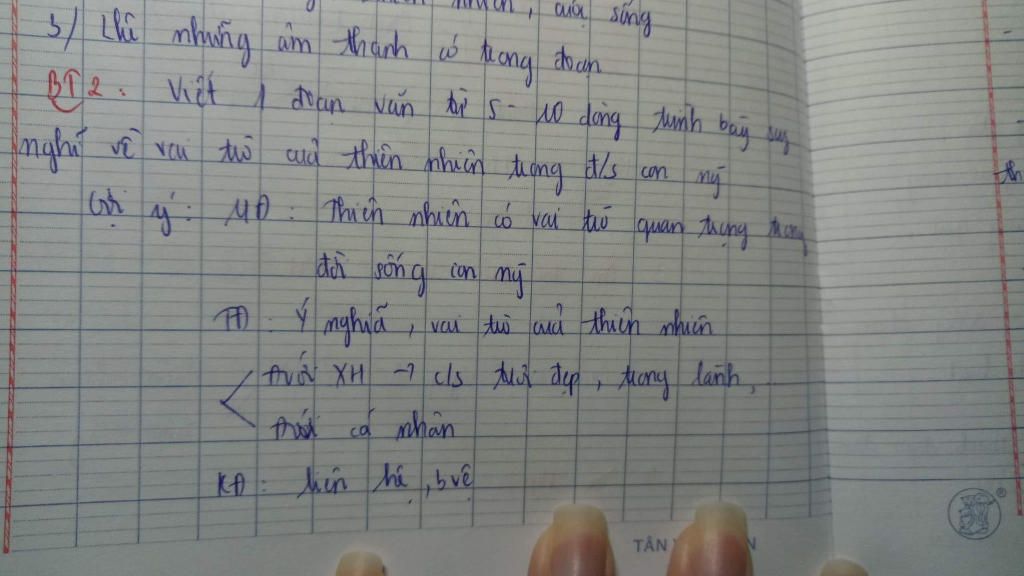 nhiên, cuộc sống
3/ Chỉ những âm thanh có trong đoạn
BT2: Viết 1 đoạn văn từ 5-10 dòng trình bày suy
nghĩ về vai trò của thiên nhiên trong đ/s con ng̃
Gợi ý: MĐ: Thiên nhiên có vai trò quan trọng trong
đời sống con ng̃
TĐ: Ý nghĩa, vai trò của thiên nhiên
XH → c/s tươi đẹp, trong lành,
cá nhân
KĐ: liên hệ, bvệ
TÂN